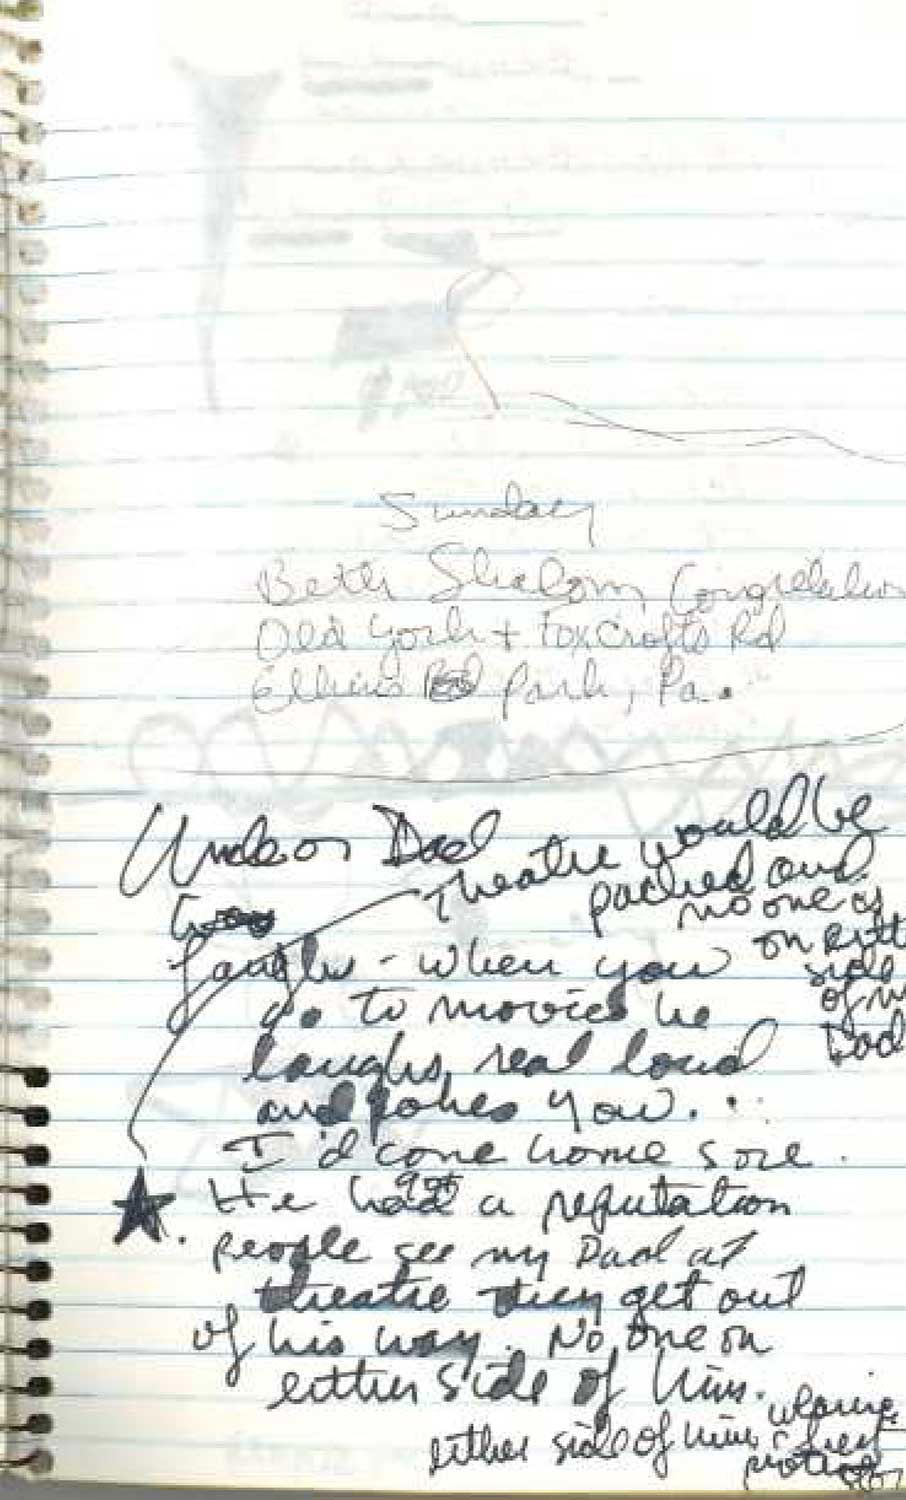 Sunday
Beth Shalom Congretation
Old York + Foxcrofts Rd
Elkins Park, Pa.
Uncle or Dad
Theatre would be
packed and
no one is
on eith
side
of my
Dad
laughs - when you
go to movies he
laughs real loud
and pokes you.
I'd come home sore.
He had got a reputation
people see my Dad at
theatre they get out
of his way. No one on
either side of him.
either side of him